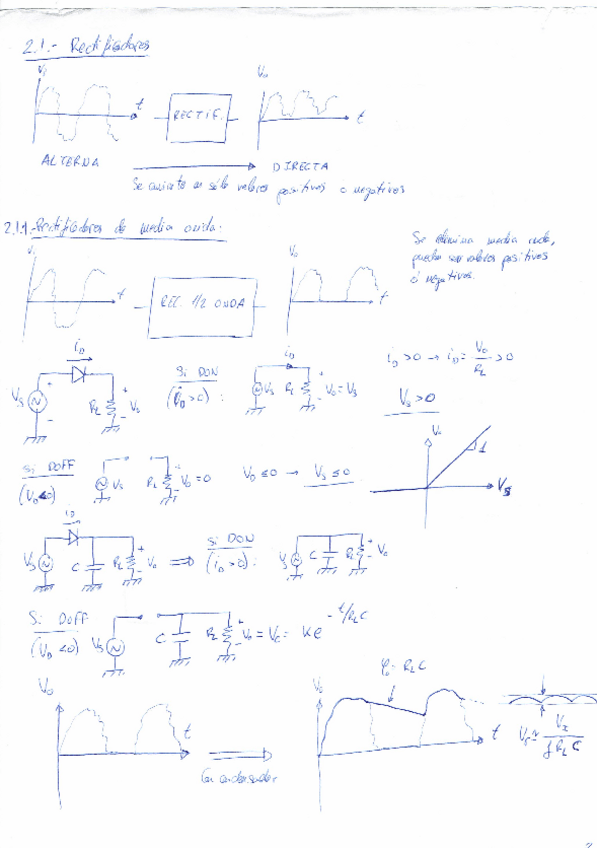 2.1.- Rectificadores
Vi
t
RECTIF.
Vo
t
ALTERNA
DIRECTA
Se convierte en sólo valores positivos o negativos
2.1.1.- Rectificadores de media onda:
Vi
t
REC 1/2 ONDA
Vo
t
Se elimina media onda,
pueden ser valores positivos
ó negativos.
iD
VS
RL
+
-
Si DON
(iD > 0) :
VS
RL
+
-
Vo = VS
iD > 0 → iD = Vo/RL > 0
VS > 0
Si DOFF
VS
RL
Vo = 0
VD ≤ 0 → VS ≤ 0
1
VS
iD
VS
C
RL
+
-
Vo
Si DON
(iD > 0) :
VS
C
RL
+
-
Vo
Si DOFF
(VD < 0)
VS
C
RL
+
-
Vo = VC = K e^-t/RLC
Vo
t
Con condensador
Vo
= RLC
t
Vr ≈ Vx / f RL C